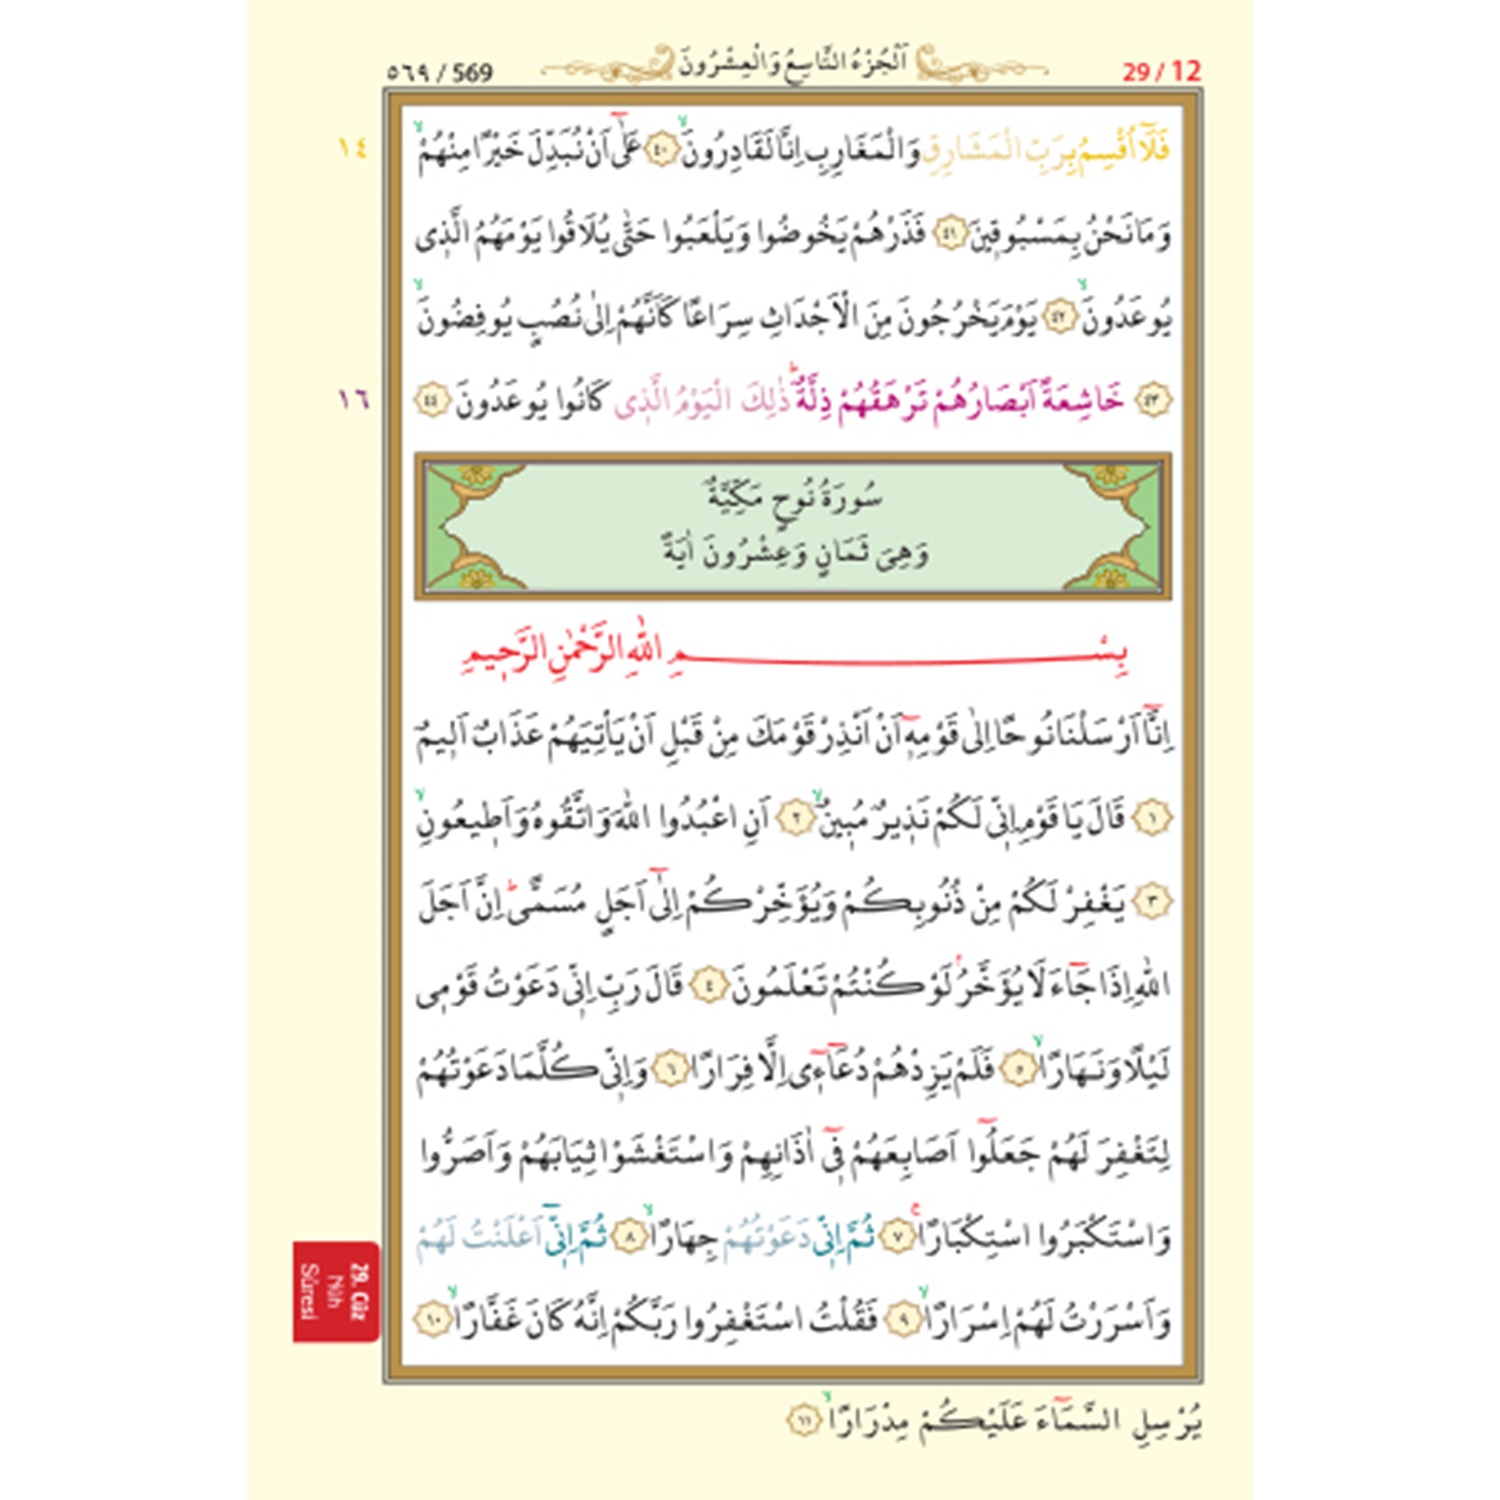 29 / 12
اَلْجُزْءُ التَّاسِعُ وَالْعِشْرُونَ
٥٦٩ / 569
فَلَٓا اُقْسِمُ بِرَبِّ الْمَشَارِقِ وَالْمَغَارِبِ اِنَّا لَقَادِرُونَۙ ﴿٤٠﴾ عَلٰٓى اَنْ نُبَدِّلَ خَيْرًا مِنْهُمْۙ
١٤
وَمَا نَحْنُ بِمَسْبُوقٖينَ ﴿٤١﴾ فَذَرْهُمْ يَخُوضُوا وَيَلْعَبُوا حَتّٰى يُلَاقُوا يَوْمَهُمُ الَّذٖى
يُوعَدُونَۙ ﴿٤٢﴾ يَوْمَ يَخْرُجُونَ مِنَ الْاَجْدَاثِ سِرَاعًا كَاَنَّهُمْ اِلٰى نُصُبٍ يُوفِضُونَۙ
﴿٤٣﴾ خَاشِعَةً اَبْصَارُهُمْ تَرْهَقُهُمْ ذِلَّةٌؕ ذٰلِكَ الْيَوْمُ الَّذٖى كَانُوا يُوعَدُونَ ﴿٤٤﴾
١٦
سُورَةُ نُوحٍ مَكِّيَّةٌ
وَهِىَ ثَمَانٍ وَعِشْرُونَ اٰيَةً
بِسْمِ اللّٰهِ الرَّحْمٰنِ الرَّحٖيمِ
اِنَّٓا اَرْسَلْنَا نُوحًا اِلٰى قَوْمِهٖٓ اَنْ اَنْذِرْ قَوْمَكَ مِنْ قَبْلِ اَنْ يَأْتِيَهُمْ عَذَابٌ اَلٖيمٌ
﴿١﴾ قَالَ يَا قَوْمِ اِنّٖى لَكُمْ نَذٖيرٌ مُبٖينٌۙ ﴿٢﴾ اَنِ اعْبُدُوا اللّٰهَ وَاتَّقُوهُ وَاَطٖيعُونِۙ
﴿٣﴾ يَغْفِرْ لَكُمْ مِنْ ذُنُوبِكُمْ وَيُؤَخِّرْكُمْ اِلٰٓى اَجَلٍ مُسَمًّىؕ اِنَّ اَجَلَ
اللّٰهِ اِذَا جَٓاءَ لَا يُؤَخَّرُۢ لَوْ كُنْتُمْ تَعْلَمُونَ ﴿٤﴾ قَالَ رَبِّ اِنّٖى دَعَوْتُ قَوْمٖى
لَيْلًا وَنَهَارًاۙ ﴿٥﴾ فَلَمْ يَزِدْهُمْ دُعَٓاءٖٓى اِلَّا فِرَارًا ﴿٦﴾ وَاِنّٖى كُلَّمَا دَعَوْتُهُمْ
لِتَغْفِرَ لَهُمْ جَعَلُٓوا اَصَابِعَهُمْ فٖٓى اٰذَانِهِمْ وَاسْتَغْشَوْا ثِيَابَهُمْ وَاَصَرُّوا
وَاسْتَكْبَرُوا اسْتِكْبَارًاۚ ﴿٧﴾ ثُمَّ اِنّٖى دَعَوْتُهُمْ جِهَارًاۙ ﴿٨﴾ ثُمَّ اِنّٖٓى اَعْلَنْتُ لَهُمْ
وَاَسْرَرْتُ لَهُمْ اِسْرَارًاۙ ﴿٩﴾ فَقُلْتُ اسْتَغْفِرُوا رَبَّكُمْ اِنَّهُ كَانَ غَفَّارًاۙ ﴿١٠﴾
29. Cüz
Nûh
Sûresi
يُرْسِلِ السَّمَٓاءَ عَلَيْكُمْ مِدْرَارًاۙ ﴿١١﴾